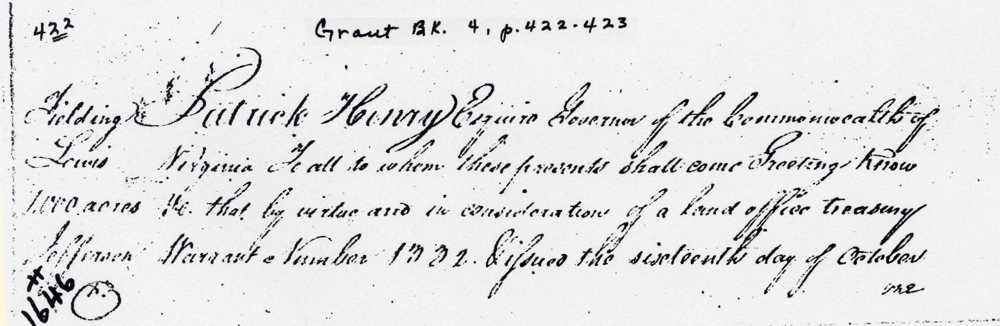 422
Grant BK. 4, p. 422-423
Fielding Patrick Henry Esquire Governor of the Commonwealth of
Lewis Virginia To all to whom these presents shall come Greeting Know
1000 acres Ye that by virtue and in consideration of a land office treasury
Jefferson Warrant Number 1332 & issued the sixteenth day of October
one
# 1646